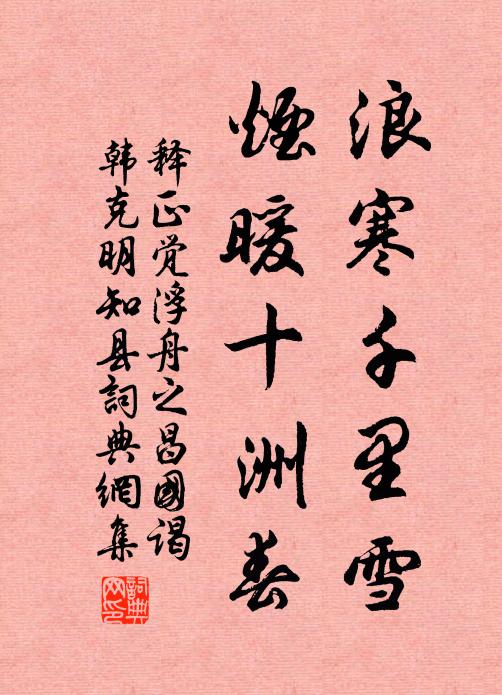 浪寒千里雪
煙暖十洲春
释正觉浮舟之昌國谒
韩克明知县詞典網集
詞典
网印